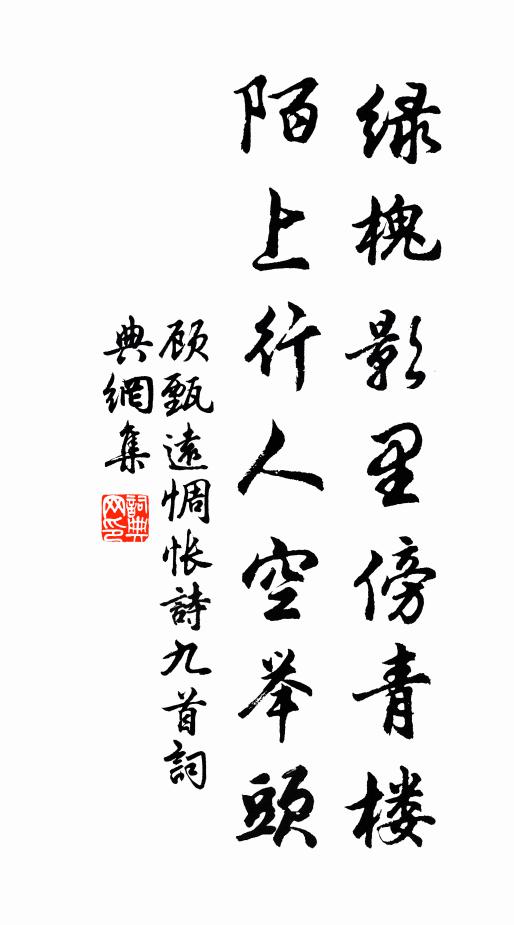 绿槐影里傍青楼
陌上行人空举頭
顾甄遠惆怅詩九首詞
典網集
詞典
网印